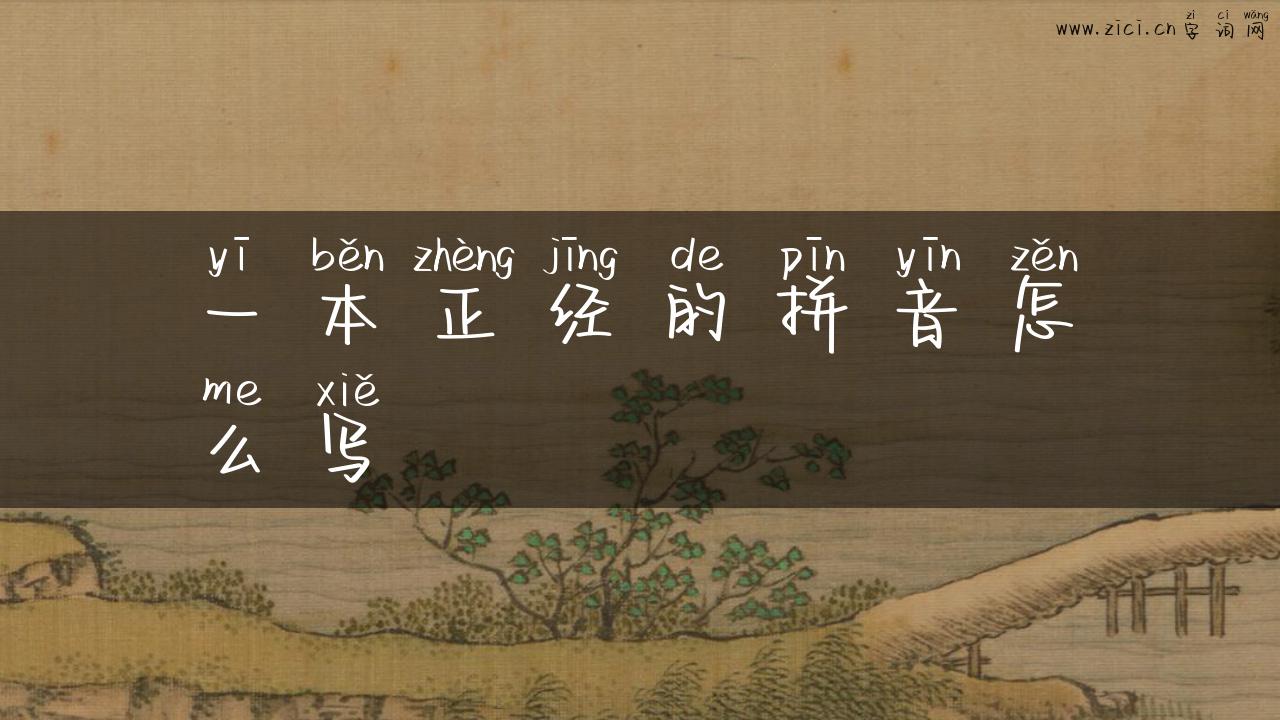 zì cí wǎng
www.zici.cn 字词网
yī běn zhèng jīng de pīn yīn zěn
一本正经的拼音怎
me xiě
么写